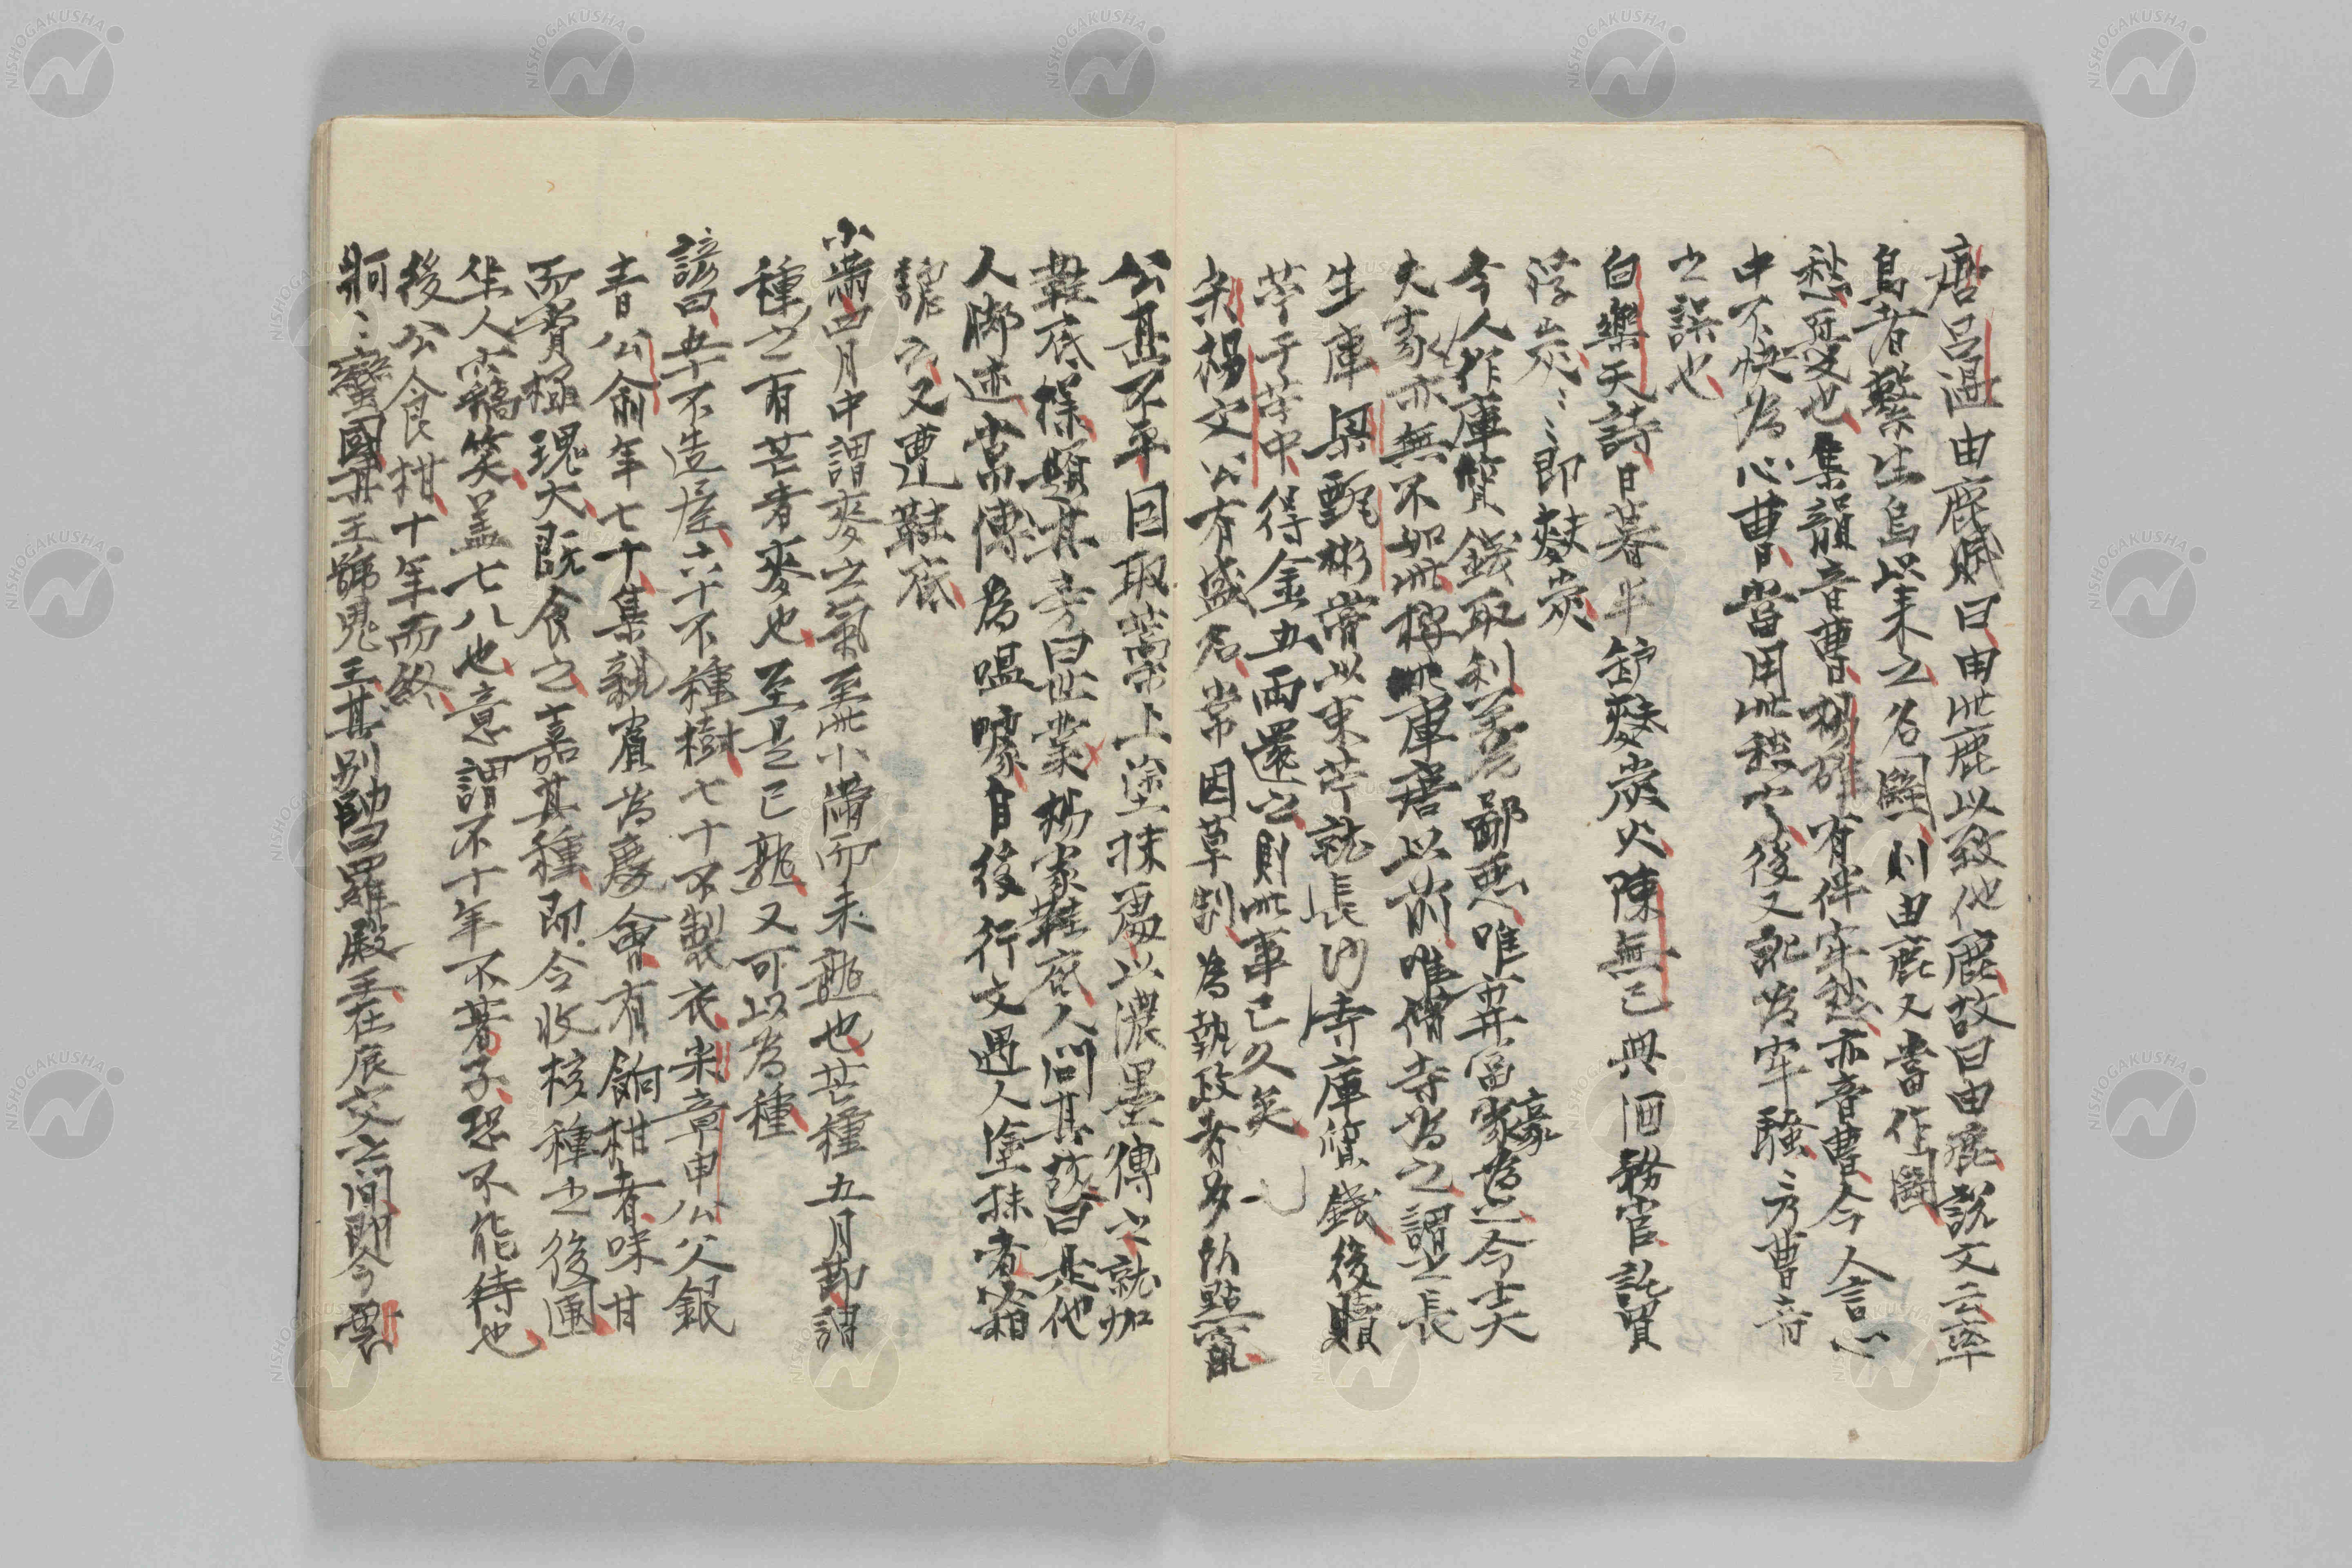 唐呂温由鹿賦曰由此鹿以致他鹿故曰由鹿說文云率
鳥者繋生鳥以来之名囮則由鹿又當作囮
愁心又也集韻音曹揚雄有伴牢愁亦音曹今人言心
中不快為心曹當用此愁字後又訛為牢騒騒乃曹音
之誤也
白樂天詩日暮半爐麩炭火陳無己與酒務官託買
浮炭浮炭即麩炭
今人作庫質錢取利至為鄙悪唯豪富家為之今士大
夫家亦無不如此稱此庫唐以前唯僧寺為之謂之長
生庫梁甄彬嘗以束苧就長沙寺庫質錢後贖
苧于苧中得金五両還之則此事已久矣
宋楊文公有盛名常因草制為執政者多所點竄
公甚不平因取藁上塗抹處以濃墨傳之就加
鞋底様題其旁曰世業楊家鞋底人問其故曰是他
人脚迹當傳為嗢噱自後行文遇人塗抹者必相
謔云又遭鞋底
小満四月中謂麥之氣至此小満而未熟也芒種五月節謂
種之有芒者麥也至是已熟又可以為種
諺曰五十不造屋六十不種樹七十不製衣宋章申公父銀
青公俞年七十集親賓為慶會有餉柑者味甘
而實極瑰大既食之嘉其種即令收核種之後圃
坐人亦竊笑蓋七八也意謂不十年不著子恐不能待也
後公食柑十年而終
牁牁蠻國其王號鬼主其別帥曰羅殿王在辰交之間即今雲